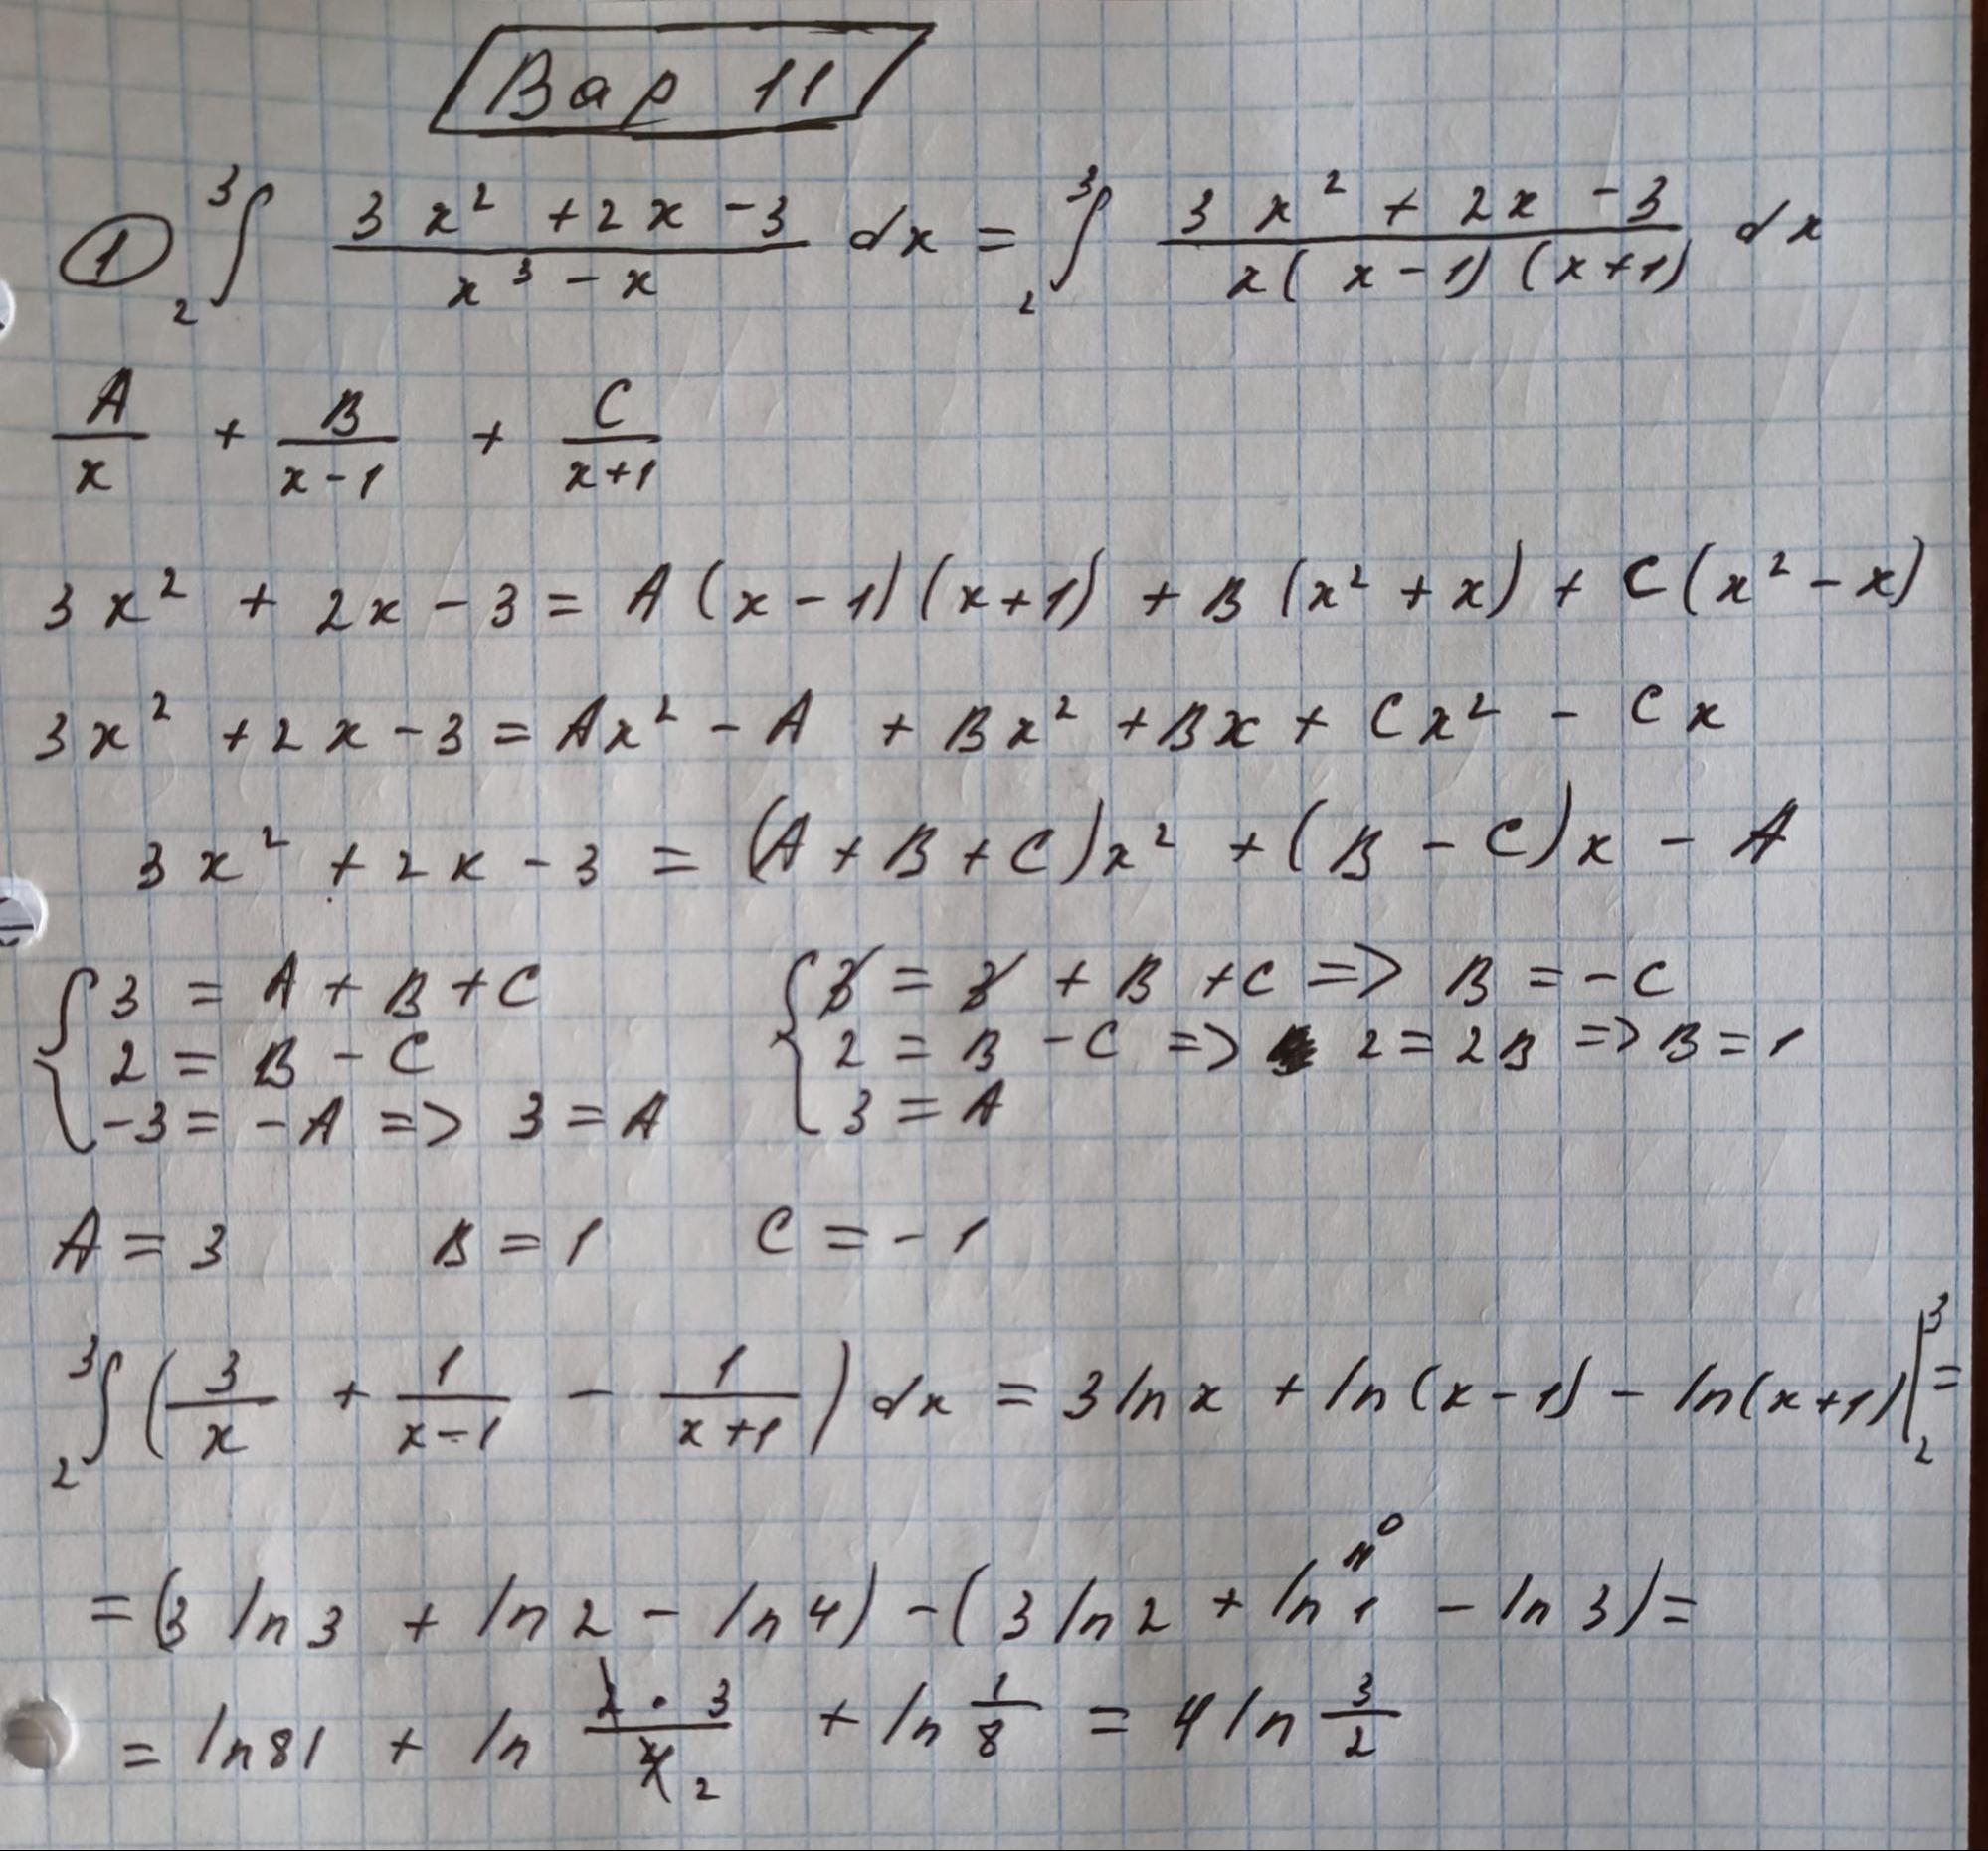 Вар 11
① ₂³∫ (3x² + 2x - 3)/(x³ - x) dx = ₂³∫ (3x² + 2x - 3)/(x(x-1)(x+1)) dx
A/x + B/(x-1) + C/(x+1)
3x² + 2x - 3 = A(x-1)(x+1) + B(x² + x) + C(x² - x)
3x² + 2x - 3 = Ax² - A + Bx² + Bx + Cx² - Cx
3x² + 2x - 3 = (A + B + C)x² + (B - C)x - A
{ 3 = A + B + C { 3 = 3 + B + C => B = -C
2 = B - C 2 = B - C => 2 = 2B => B = 1
-3 = -A => 3 = A 3 = A
A = 3 B = 1 C = -1
₂³∫ (3/x + 1/(x-1) - 1/(x+1)) dx = 3 ln x + ln(x-1) - ln(x+1) |₂³ =
= (3 ln 3 + ln 2 - ln 4) - (3 ln 2 + ln 1 - ln 3) =
= ln 81 + ln (2·3)/4 2 + ln 1/8 = 4 ln 3/2